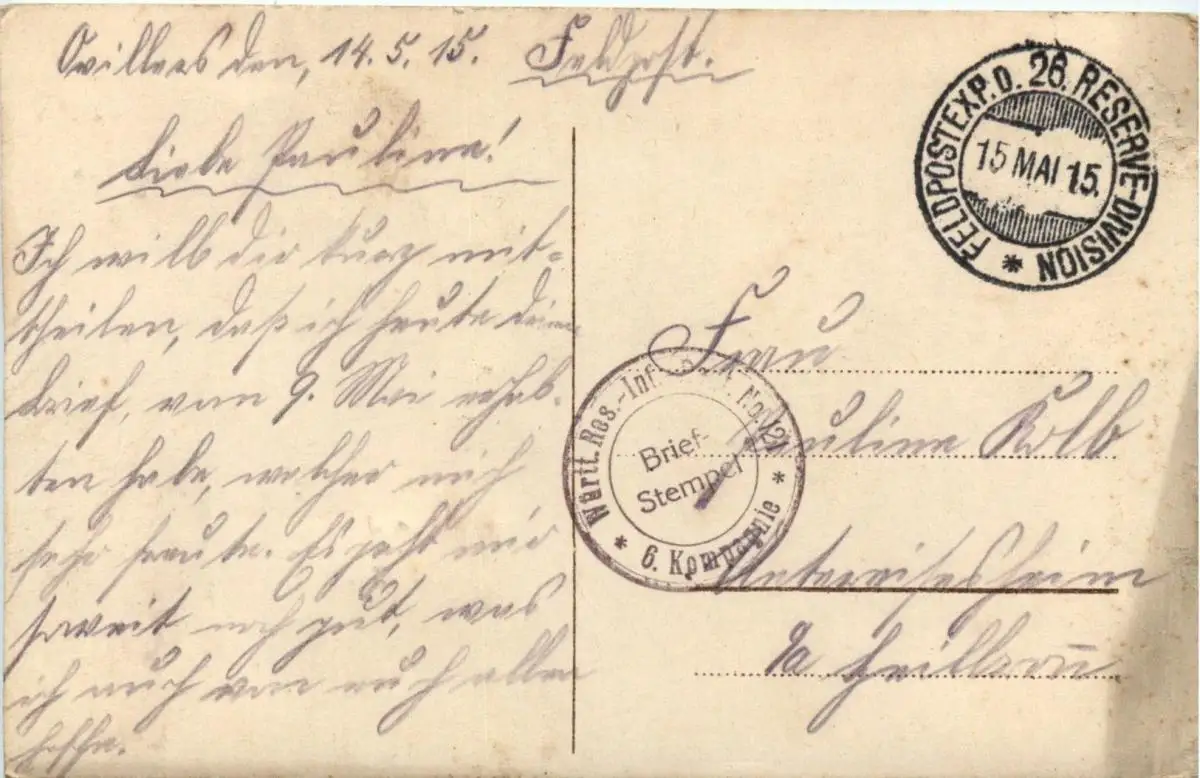 Ovillers den, 14.5.15. Feldpost.
Liebe Pauline!
Ich will dir kurz mit-
theilen, daß ich heute dein
Brief, vom 9. Mai erhal-
ten habe, welcher mich
sehr freute. Es geht mir
soweit noch gut, was
ich auch von euch allen
hoffe.
FELDPOSTEXP. D. 26. RESERVE-DIVISION *
15 MAI 15.
Württ. Res.-Inf. No. 121
Brief-
Stempel
* 6. Kompagnie *
Frau
Pauline Kolb
Untereisesheim
a/ Heilbronn